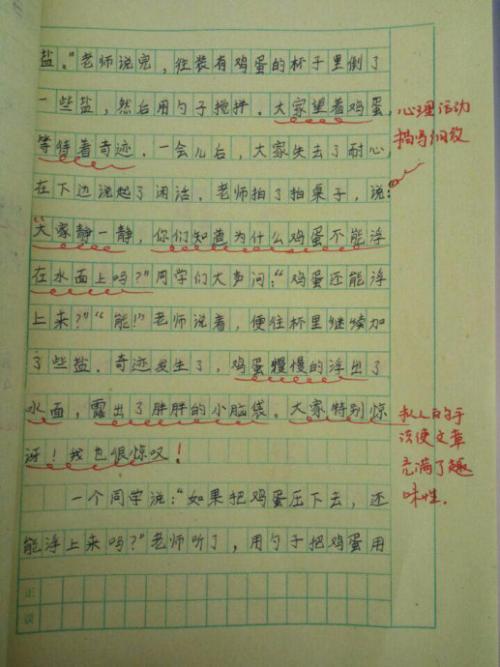 盐。"老师说完，往装有鸡蛋的杯子里倒了
一些盐，然后用勺子搅拌。大家望着鸡蛋，
等待着奇迹。一会儿后，大家失去了耐心，
在下边说起了闲话。老师拍了拍桌子，说：
"大家静一静，你们知道为什么鸡蛋不能浮
在水面上吗？"同学们大声问："鸡蛋还能浮
上来？""能！"老师说着，便往杯里继续加
了些盐。奇迹发生了，鸡蛋慢慢的浮出了
水面，露出了胖胖的小脑袋。大家特别惊
讶！我也很惊叹！
一个同学说："如果把鸡蛋压下去，还
能浮上来吗？"老师听了，用勺子把鸡蛋用
心理活动
描写细致
拟人的句子
使文章
充满了趣
味性。
正
误